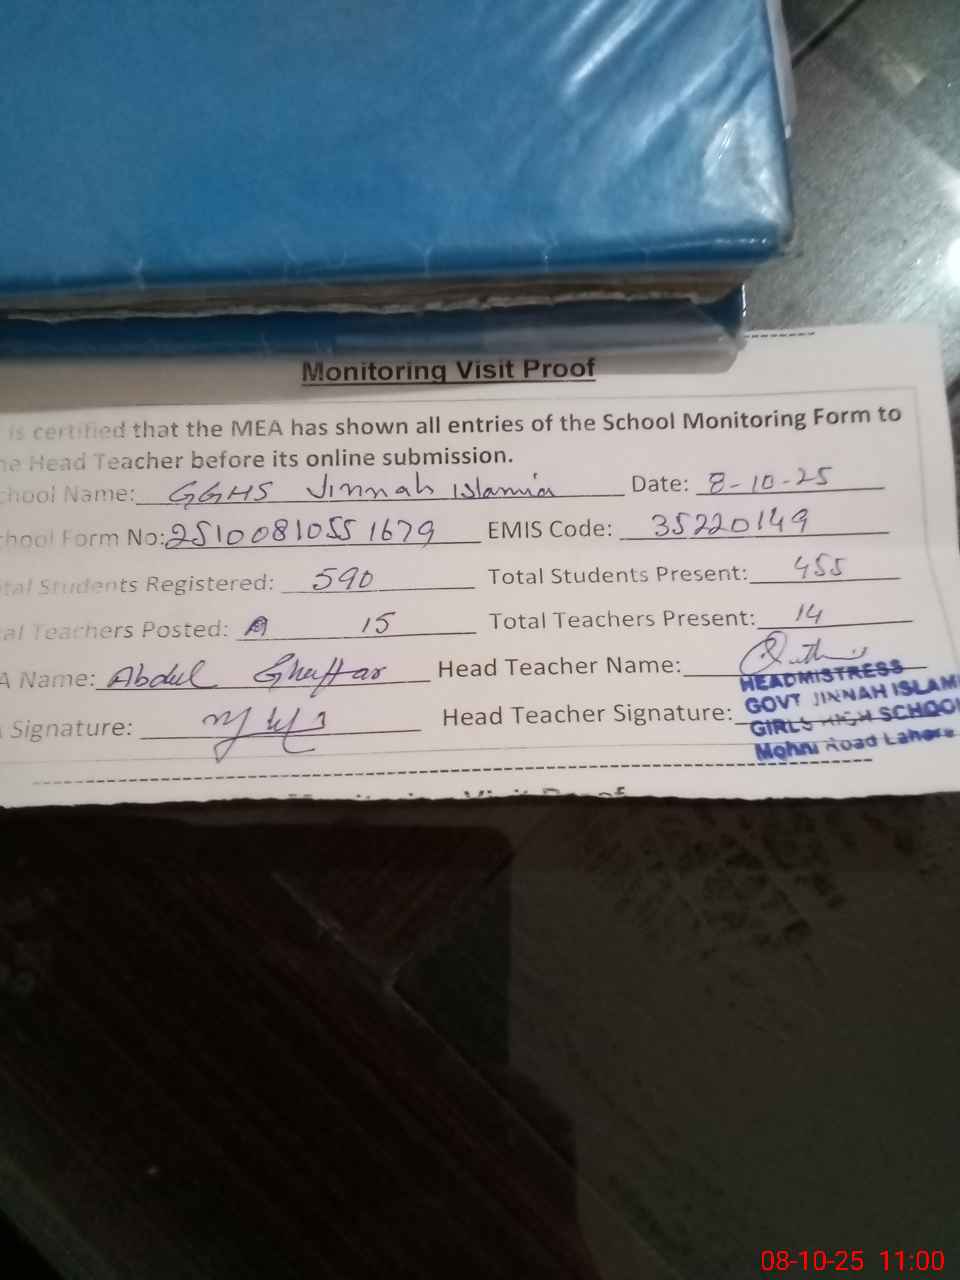 Monitoring Visit Proof
is certified that the MEA has shown all entries of the School Monitoring Form to
he Head Teacher before its online submission.
chool Name: GGHS Jinnah Islamia Date: 8-10-25
hool Form No: 25100810551679 EMIS Code: 35220149
tal Students Registered: 590 Total Students Present: 455
al Teachers Posted: 15 Total Teachers Present: 14
A Name: Abdul Ghaffar Head Teacher Name:
Signature: Head Teacher Signature:
HEADMISTRESS
GOVT JINNAH ISLAM
GIRLS HIGH SCHOOL
Mohni Road Lahore
08-10-25 11:00